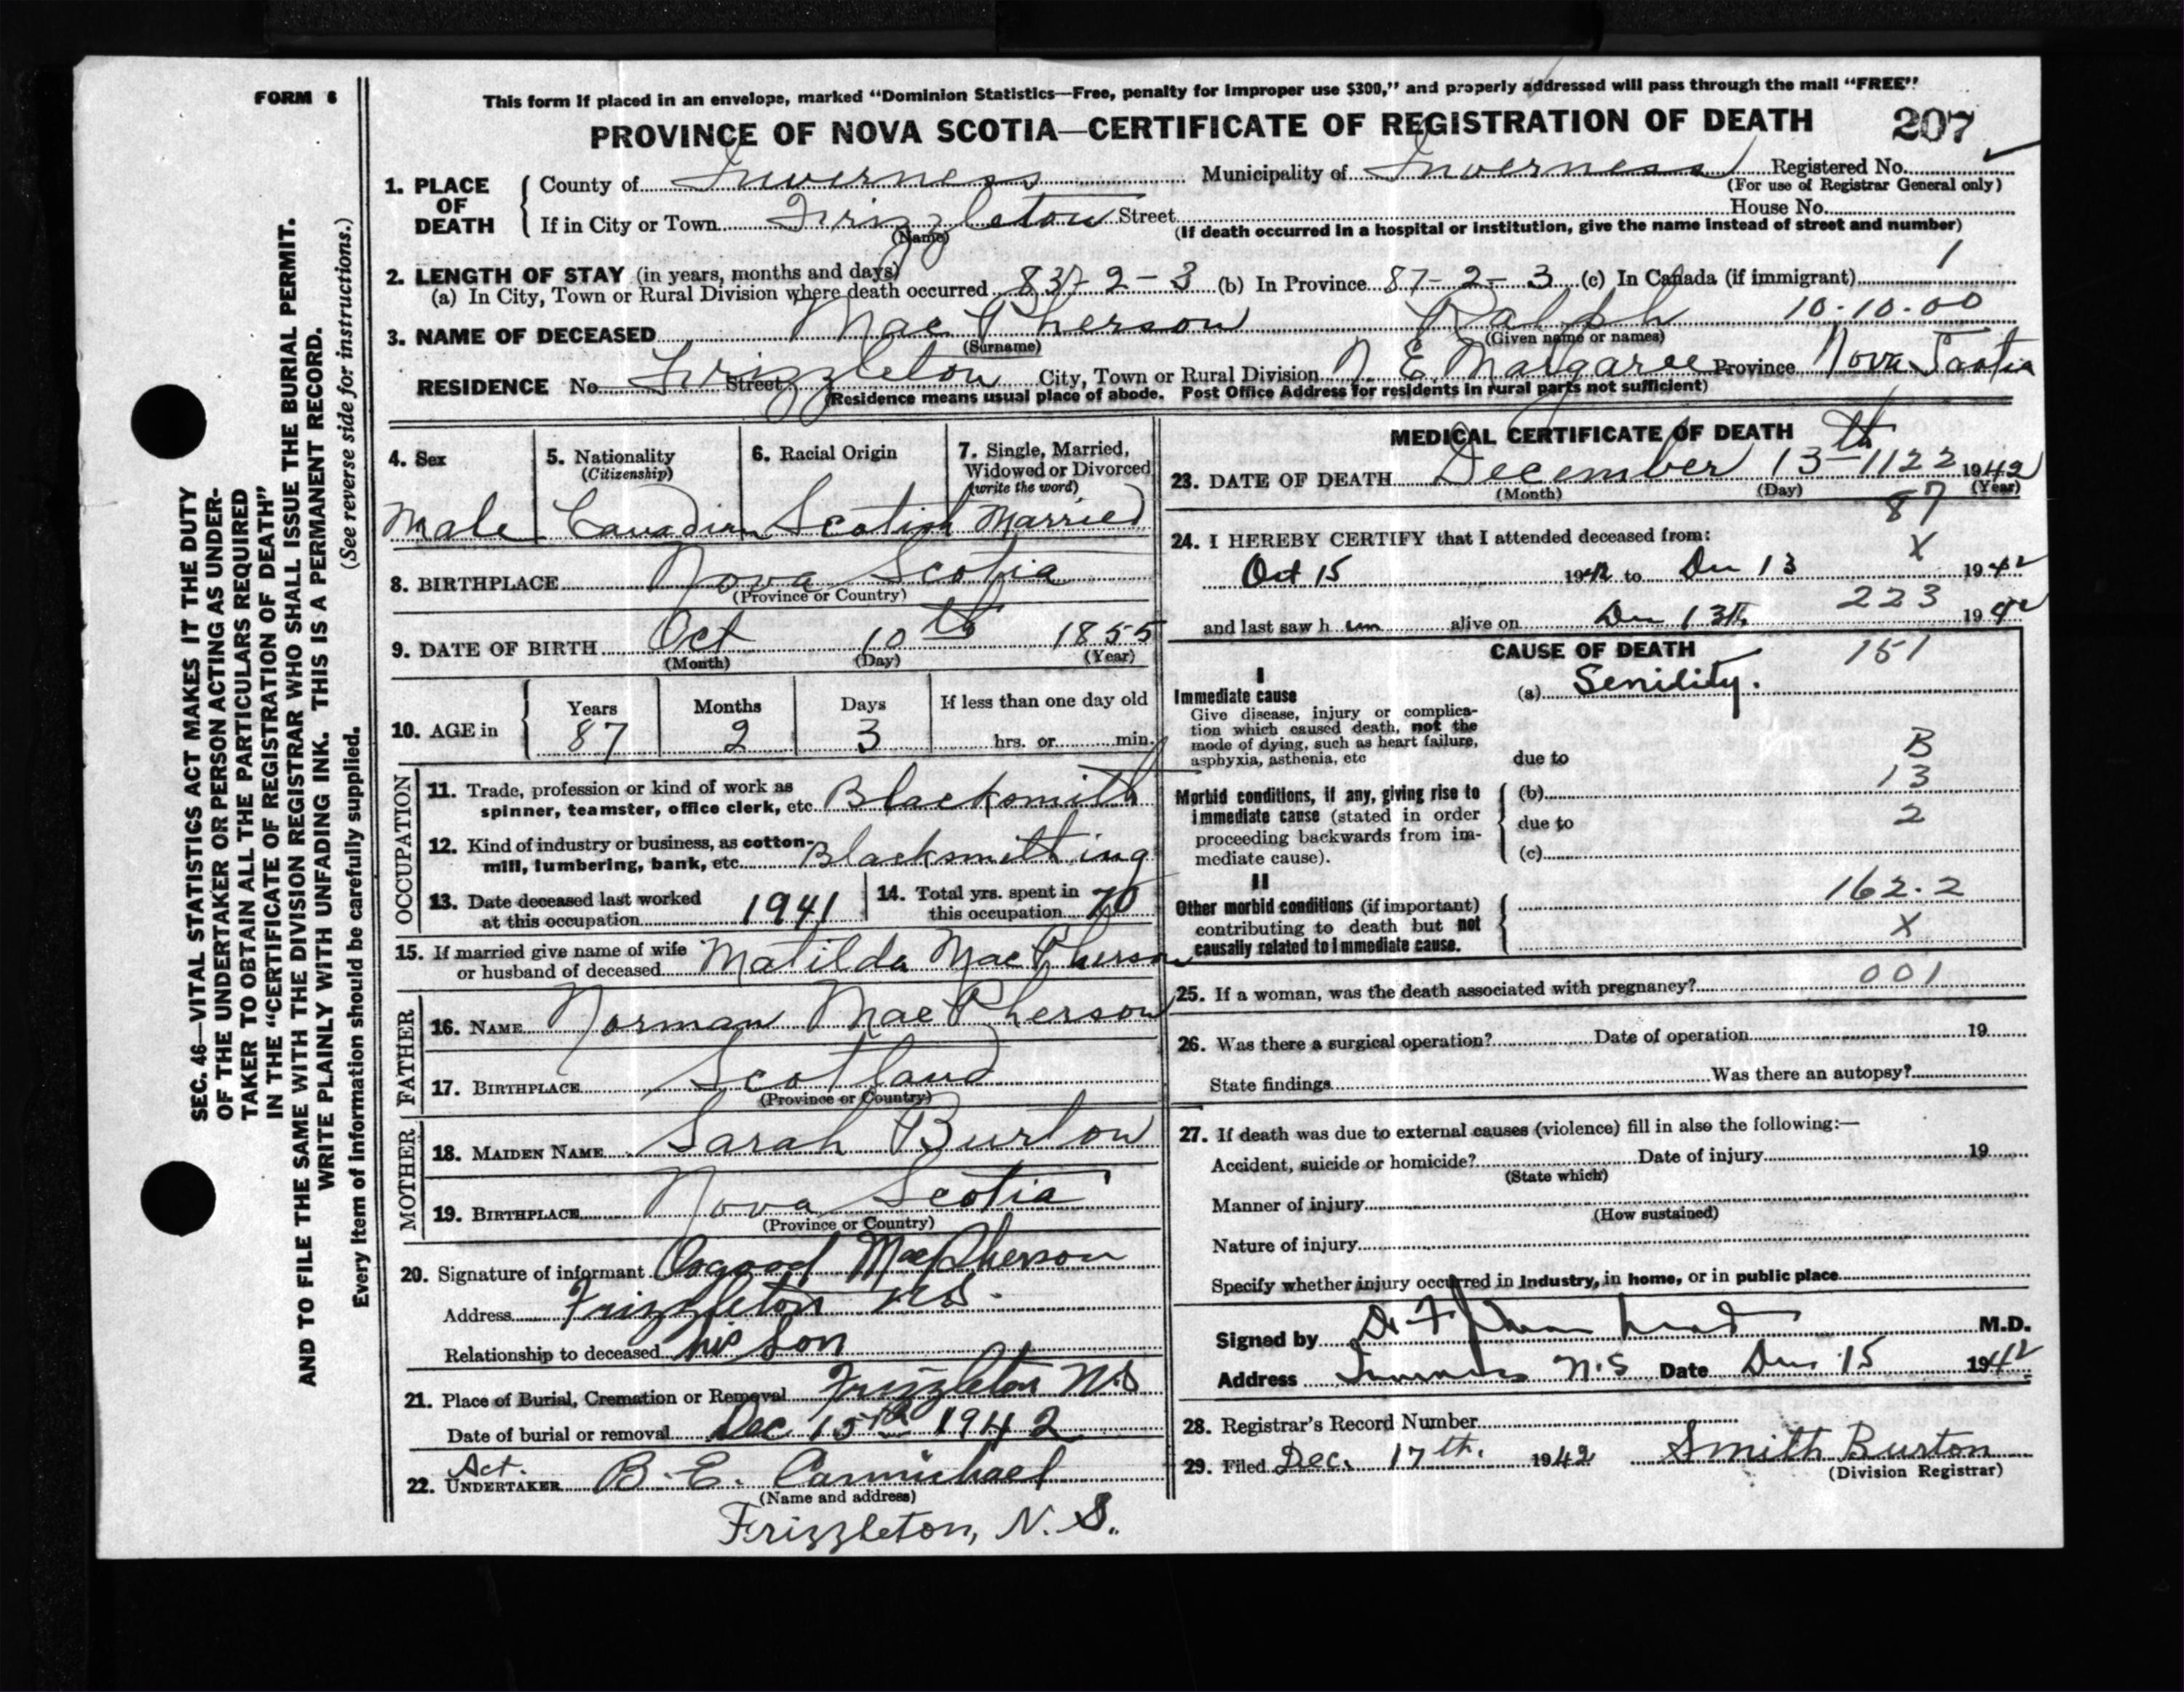 FORM 6
This form if placed in an envelope, marked “Dominion Statistics—Free, penalty for improper use $300,” and properly addressed will pass through the mail “FREE”
PROVINCE OF NOVA SCOTIA—CERTIFICATE OF REGISTRATION OF DEATH 207
1. PLACE OF DEATH County of Inverness Municipality of Inverness Registered No.
(For use of Registrar General only)
If in City or Town Frizzleton Street House No.
(Name) (If death occurred in a hospital or institution, give the name instead of street and number)
2. LENGTH OF STAY (in years, months and days) 1
(a) In City, Town or Rural Division where death occurred 87-2-3 (b) In Province 87-2-3 (c) In Canada (if immigrant)
3. NAME OF DECEASED MacPherson Ralph 10-10-00
(Surname) (Given name or names)
RESIDENCE No. Frizzleton Street City, Town or Rural Division N E Margaree Province Nova Scotia
(Residence means usual place of abode. Post Office Address for residents in rural parts not sufficient)
4. Sex
Male
5. Nationality
(Citizenship)
Canadian
6. Racial Origin
Scotish
7. Single, Married, Widowed or Divorced
(write the word)
Married
8. BIRTHPLACE Nova Scotia
(Province or Country)
9. DATE OF BIRTH Oct 10th 1855
(Month) (Day) (Year)
10. AGE in Years Months Days If less than one day old
87 2 3 hrs. or min.
OCCUPATION
11. Trade, profession or kind of work as
spinner, teamster, office clerk, etc. Blacksmith
12. Kind of industry or business, as cotton-
mill, lumbering, bank, etc. Blacksmithing
13. Date deceased last worked
at this occupation 1941
14. Total yrs. spent in
this occupation 70
15. If married give name of wife
or husband of deceased Matilda MacPherson
FATHER
16. NAME Norman MacPherson
17. BIRTHPLACE Scotland
(Province or Country)
MOTHER
18. MAIDEN NAME Sarah Burton
19. BIRTHPLACE Nova Scotia
(Province or Country)
20. Signature of informant Osgood MacPherson
Address Frizzleton N.S.
Relationship to deceased his Son
21. Place of Burial, Cremation or Removal Frizzleton N.S
Date of burial or removal Dec 15th 1942
Act.
22. UNDERTAKER B. E. Carmichael
(Name and address)
Frizzleton, N. S.
MEDICAL CERTIFICATE OF DEATH
23. DATE OF DEATH December 13th 1122 1942
(Month) (Day) (Year)
87
24. I HEREBY CERTIFY that I attended deceased from: X
Oct 15 1942 to Dec 13 1942
223
and last saw him alive on Dec 13th 1942
CAUSE OF DEATH 151
I
Immediate cause (a) Senility.
Give disease, injury or complica-
tion which caused death, not the
mode of dying, such as heart failure,
asphyxia, asthenia, etc due to B
Morbid conditions, if any, giving rise to (b) 13
immediate cause (stated in order due to 2
proceeding backwards from im-
mediate cause). (c)
II 162.2
Other morbid conditions (if important)
contributing to death but not X
causally related to immediate cause.
25. If a woman, was the death associated with pregnancy? 001
26. Was there a surgical operation? Date of operation 19
State findings Was there an autopsy?
27. If death was due to external causes (violence) fill in also the following:—
Accident, suicide or homicide? Date of injury 19
(State which)
Manner of injury
(How sustained)
Nature of injury
Specify whether injury occurred in industry, in home, or in public place
Signed by M.D.
Address N.S Date Dec 15 1942
28. Registrar's Record Number
29. Filed Dec. 17th. 1942 Smith Burton
(Division Registrar)
SEC. 46—VITAL STATISTICS ACT MAKES IT THE DUTY
OF THE UNDERTAKER OR PERSON ACTING AS UNDER-
TAKER TO OBTAIN ALL THE PARTICULARS REQUIRED
IN THE “CERTIFICATE OF REGISTRATION OF DEATH”
AND TO FILE THE SAME WITH THE DIVISION REGISTRAR WHO SHALL ISSUE THE BURIAL PERMIT.
WRITE PLAINLY WITH UNFADING INK. THIS IS A PERMANENT RECORD.
(See reverse side for instructions.)
Every item of information should be carefully supplied.